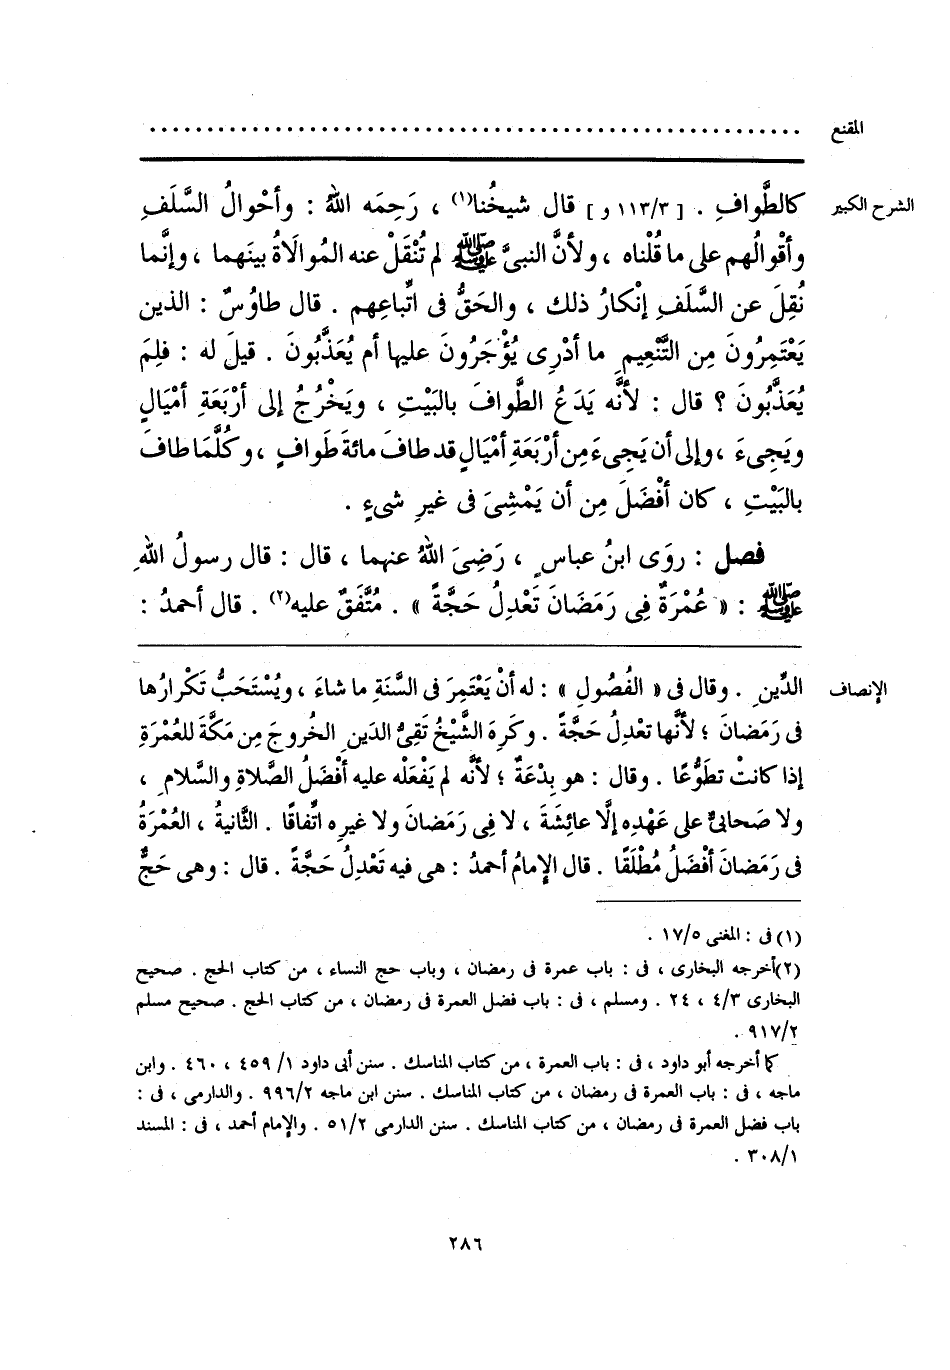 المقنع ......................................................
الشرح الكبير كالطَّوافِ . [ ١١٣/٣ و ] قال شيخُنا(١) ، رَحِمَه اللهُ : وأحْوالُ السَّلَفِ
وأقْوالُهم على ما قُلْناه ، ولأنَّ النبىَّ ﷺ لم تُنْقَلْ عنه المُوالَاةُ بينَهما ، وإنَّما
نُقِلَ عن السَّلَفِ إنْكارُ ذلك ، والحَقُّ فى اتِّباعِهم . قال طاوُسٌ : الذين
يَعْتَمِرُونَ مِن التَّنْعِيمِ ما أدْرِى يُؤْجَرُونَ عليها أم يُعَذَّبُونَ . قيلَ له : فلِمَ
يُعَذَّبُونَ ؟ قال : لأنَّه يَدَعُ الطَّوافَ بالبَيْتِ ، ويَخْرُجُ إلى أرْبَعَةِ أمْيَالٍ
ويَجِىءَ ، وإلى أن يَجِىءَ مِن أرْبَعَةِ أمْيَالٍ قد طافَ مائةَ طَوافٍ ، وكُلَّمَا طافَ
بالبَيْتِ ، كان أفْضَلَ مِن أن يَمْشِىَ فى غيرِ شىءٍ .
فصل : روَى ابنُ عباسٍ ، رَضِىَ اللهُ عنهما ، قال : قال رسولُ اللهِ
ﷺ : « عُمْرَةٌ فِى رَمَضَانَ تَعْدِلُ حَجَّةً » . مُتَّفَقٌ عليه(٢) . قال أحمدُ :
الإنصاف الدِّينِ . وقال فى « الفُصُولِ » : له أنْ يَعْتَمِرَ فى السَّنَةِ ما شاءَ ، ويُسْتَحَبُّ تَكْرارُها
فى رَمَضانَ ؛ لأنَّها تعْدِلُ حَجَّةً . وكَرِهَ الشَّيْخُ تَقِىُّ الدِّينِ الخُروجَ مِن مَكَّةَ للعُمْرَةِ
إذا كانتْ تطَوُّعًا . وقال : هو بِدْعَةٌ ؛ لأنَّه لم يَفْعَلْه عليه أفْضَلُ الصَّلاةِ والسَّلامِ ،
ولا صَحابىٌّ على عَهْدِه إلَّا عائِشَةَ ، لا فِى رَمَضانَ ولا غيرِه اتِّفاقًا . الثَّانيةُ ، العُمْرَةُ
فى رَمَضانَ أفْضَلُ مُطْلَقًا . قال الإمامُ أحمدُ : هى فيه تَعْدِلُ حَجَّةً . قال : وهى حَجٌّ
(١) فى : المغنى ١٧/٥ .
(٢) أخرجه البخارى ، فى : باب عمرة فى رمضان ، وباب حج النساء ، من كتاب الحج . صحيح
البخارى ٤/٣ ، ٢٤ . ومسلم ، فى : باب فضل العمرة فى رمضان ، من كتاب الحج . صحيح مسلم
٩١٧/٢ .
كما أخرجه أبو داود ، فى : باب العمرة ، من كتاب المناسك . سنن أبى داود ١/ ٤٥٩ ، ٤٦٠ . وابن
ماجه ، فى : باب العمرة فى رمضان ، من كتاب المناسك . سنن ابن ماجه ٩٩٦/٢ . والدارمى ، فى :
باب فضل العمرة فى رمضان ، من كتاب المناسك . سنن الدارمى ٥١/٢ . والإمام أحمد ، فى : المسند
٣٠٨/١ .
٢٨٦